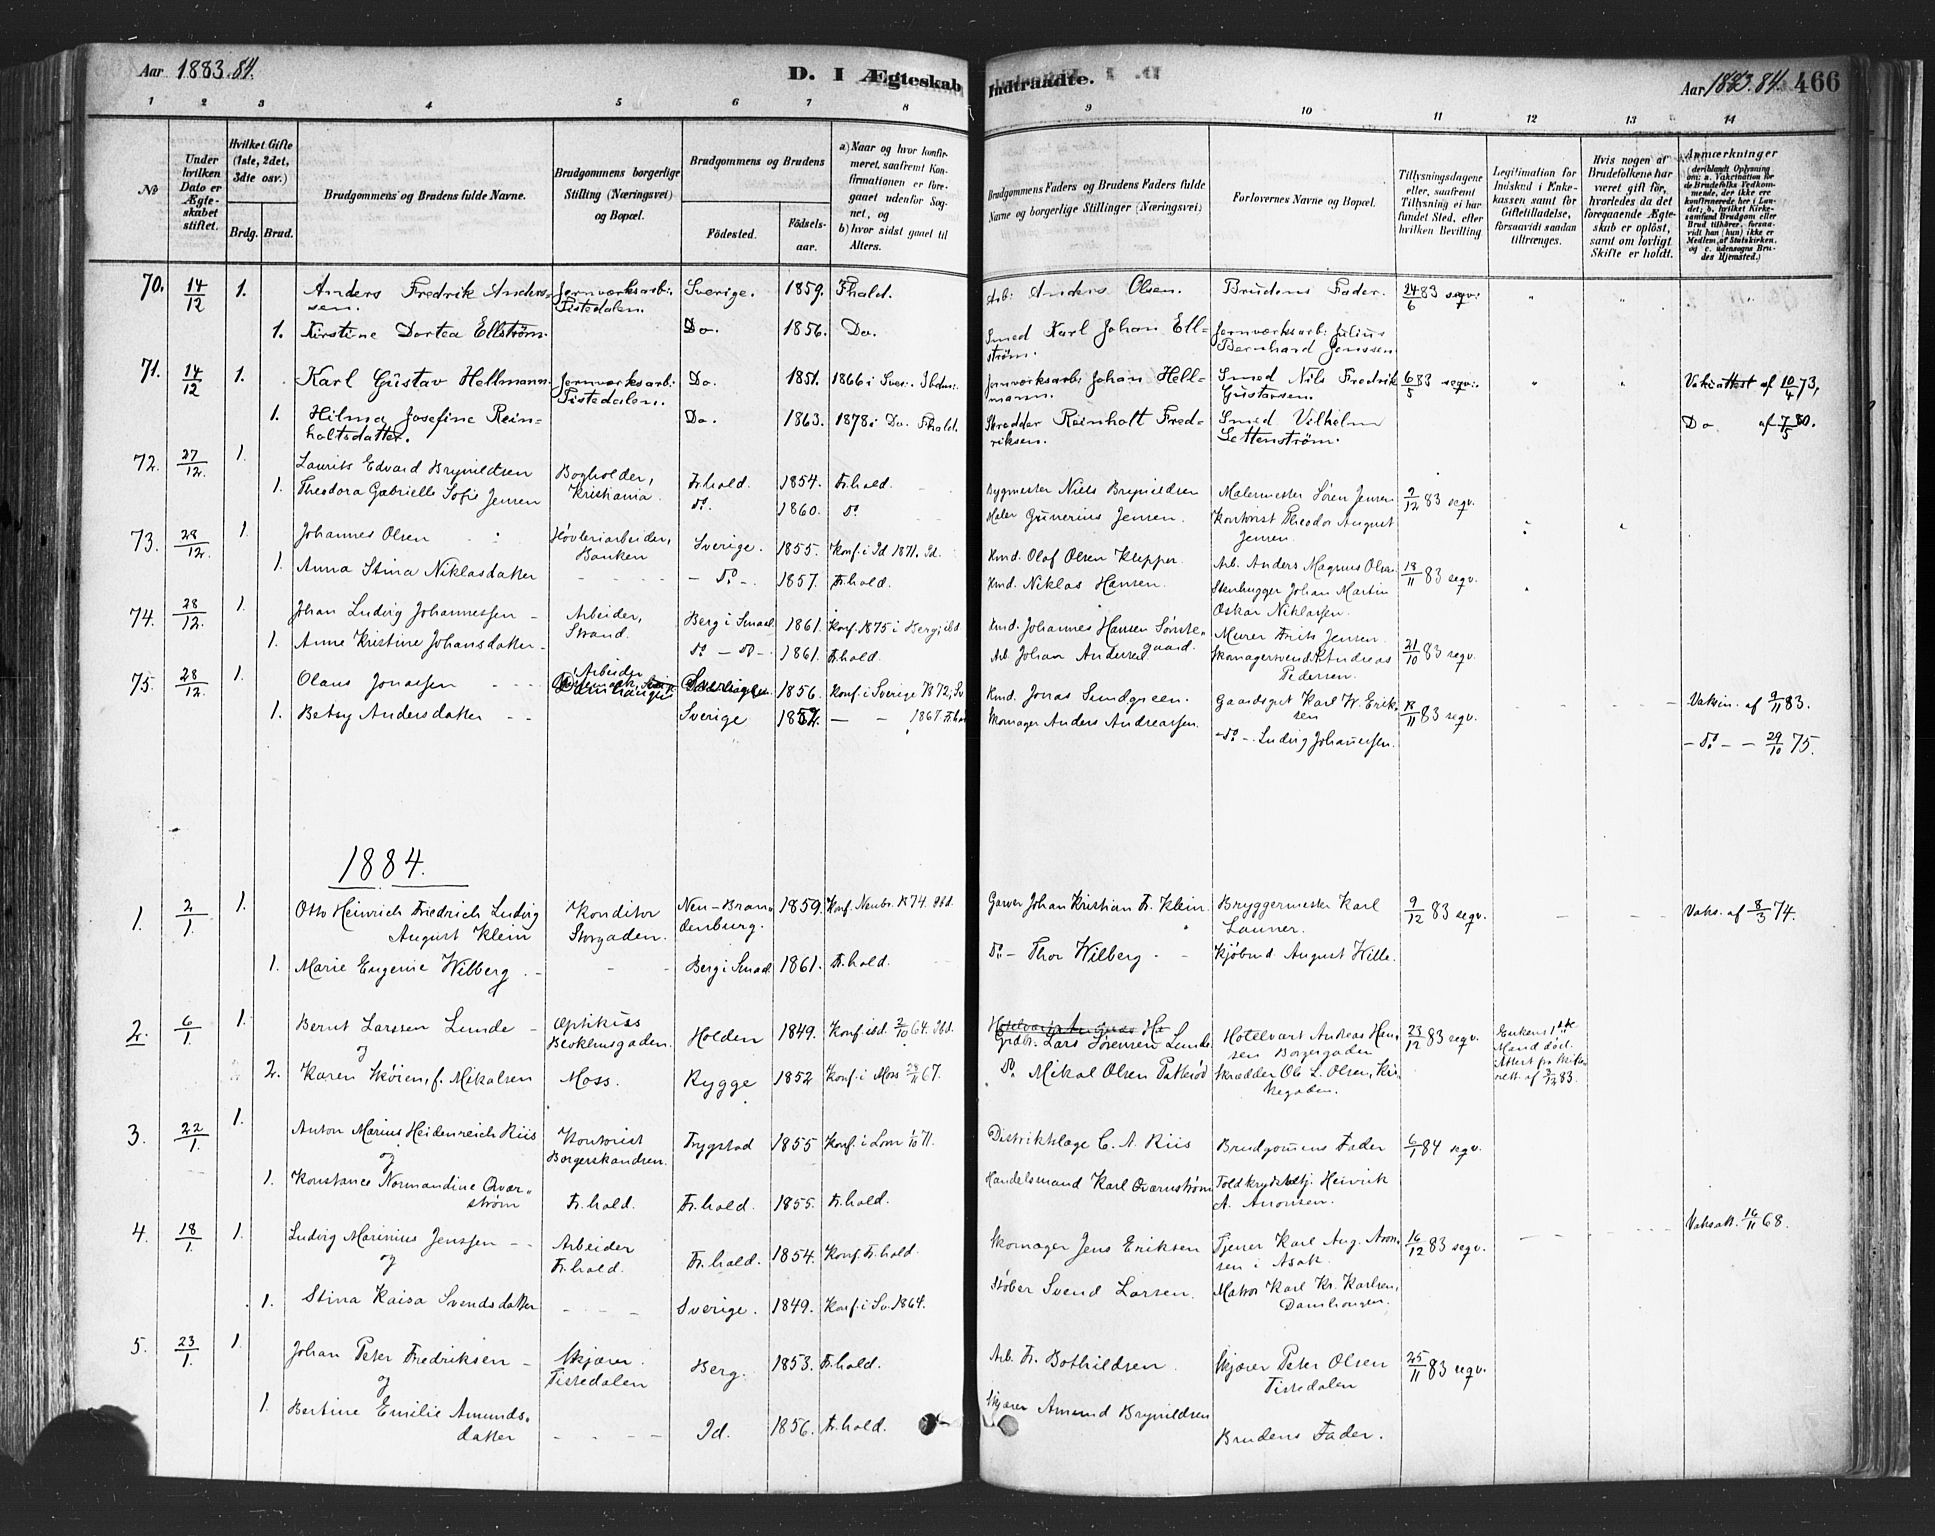 Aar 1883.84.
D. I Ægteskab
Indtraadte.
Aar 1883.84. 466
1 2 3 4 5 6 7 8 9 10 11 12 13 14
No
Under hvilken Dato er Ægteskabet stiftet.
Hvilket Gifte (1ste, 2det, 3die osv.)
Brdg. Brud.
Brudgommens og Brudens fulde Navne.
Brudgommens borgerlige Stilling (Næringsvei) og Bopæl.
Brudgommens og Brudens
Fødested.
Fødsels-aar.
a) Naar og hvor konfirmeret, saafremt Konfirmationen er foregaaet udenfor Sognet, og
b) hvor sidst gaaet til Alters.
Brudgommens Faders og Brudens Faders fulde Navne og borgerlige Stillinger (Næringsvei)
Forlovernes Navne og Bopæl.
Tillysningsdagene eller, saafremt Tillysning ei har fundet Sted, efter hvilken Bevilling
Legitimation for Indskud i Enkekassen samt for Giftetilladelse, forsaavidt saadan tiltrænges.
Hvis nogen af Brudefolkene har været gift før, hvorledes da det foregaaende Ægteskab er opløst, samt om lovligt Skifte er holdt.
Anmærkninger
70. 14/12 1. Anders Fredrik Anderssen. Jernværksarb: Tistedalen. Sverige. 1859. Fhald. Arb: Anders Olsen. Brudens Fader. 24/6 83 segv:
1. Kirstine Dortea Ellström. Do. 1856. Do. Smed Karl Johan Ellström. Jernværksarb: Julius Bernhard Jenssen
71. 14/12 1. Karl Gustav Hellmann. Jernværksarb: Tistedalen. Do. 1851. 1866 i Sver: Ibdm. Jernværksarb: Johan Hellmann. Smed Nils Fredrik Gustavsen. 6/5 83 segv: Vakcattest af 10/4 73,
1. Hilma Josefine Reinholtsdatter. Do. 1863. 1878 i Do. Fhald. Skrædder Reinholt Fredriksen. Smed Vilhelm Settenström. Do. af 7/5 80.
72. 27/12. 1. Laurits Edvard Brynildsen Bogholder, Kristiania. Fr.hald. 1854. Fr.hald. Bygmester Niels Brynildsen Malermester Søren Jensen 2/12 83 segv.
1. Theodora Gabrielle Sofie Jensen do. 1860. do Maler Gunerius Jensen. Kontorist Theodor August Jensen.
73. 28/12. 1. Johannes Olsen Høvleriarbeider, Banken Sverige. 1855. Konf. i Id 1871. Id. Hmd. Olaf Olsen Klepper. Arb. Anders Magnus Olsen 18/11 83 segv.
1. Anna Stina Niklasdatter - do -. 1857. Fr.hald. Hmd. Niklas Hansen. Stenhugger Johan Martin Oskar Niklassen.
74. 28/12. 1. Johan Ludvig Johannessen - Arbeider, Strand. Berg i Smaal. 1861. Konf. 1875 i Berg, ibd. Hmd. Johannes Hansen Sørstegaard. Murer Frits Jensen. 21/10 83 segv.
1. Anne Kristine Johansdatter - do - do -. 1861. Fr.hald. Arb. Johan Andersen Skomagersvend Andreas Pedersen.
75. 28/12. 1. Olaus Jonassen Arbeider Damhaugen Sverige 1856. Konf. i Sverige 1872, Sv Hmd. Jonas Sundgreen. Gaardsgut Karl W. Eriksen 18/11 83 segv. Vaksin. af 9/11 83.
1. Betsy Andersdatter Sverige 1852. — — 1867. Fr.hald Skomager Anders Andreassen. - do -. Ludvig Johannessen. - do - - 29/10 75.
1884.
1. 2/1. 1. Otto Heinrich Friedrich Ludvig August Klein Konditor Storgaden. Neu-Brandenburg. 1859. Konf. Neubr. 1874. Ibd. Garver Johan Kristian Fr. Klein. Bryggermester Karl Launer. 9/12 83 segv. Vaks. af 8/3 74.
1. Marie Eugenie Wilberg. - Berg i Smaal 1861. Fr.hald. do - Thor Wilberg Kjøbmd. August Hille.
2. 6/1. 1. Bernt Larssen Lunde - og Optikus Beoklensgaden. Holden 1849. Konf. ibd. 2/10 64. Ibd. Grdbr. Lars Sørensen Lunde Hotelvært Andreas Hansen Borgergaden 23/12 83 segv. Enkens 1ste Mand død. Attest fra Skifterett. af 3/12 83.
2. Karen Skøien, f. Mikalsen Moss. Rygge 1852 Konf. i Moss 28/11 67. do. Mikal Olsen Patterød Skrædder Ole L. Olsen, Kirkegaden.
3. 22/1. 1. Anton Marius Heidenreich Riis og Kontorist Borgerskandsen. Trygstad 1855 Konf. i Lom 1/10 71. Distriktslæge C. A. Riis Brudgommens Fader 6/1 84 segv.
1. Konstance Normandine Qvarnstrøm Fr.hald. Fr.hald. 1855. Fr.hald. Handelsmand Karl Qvarnstrøm Toldkrydsbetj. Heinrik A. Anonsen.
4. 18/1. 1. Ludvig Marinius Jenssen - - og Arbeider Fr.hald. Fr.hald. 1854. Konf. Fr.hald. Skomager Jens Eriksen Tjener Karl Aug. Aronsen i Asak. 16/12 83 segv. Vaksatt. 16/11 68.
1. Stina Kaisa Svendsdatter Sverige. 1849. Konf. i Sv. 1864. Støber Svend Larsen. Matros Karl Kr. Karlsen, Damhaugen.
5. 23/1. 1. Johan Peter Fredriksen - og Skjærer. Tistedalen Berg. 1853. Fr.hald. Arb. Fr. Bothildsen. Skjærer Peter Olsen Tistedalen 25/11 83 segv.
1. Bertine Emilie Amundsdatter Id. 1856. Fr.hald. Skjærer Amund Brynildsen Brudens Fader.